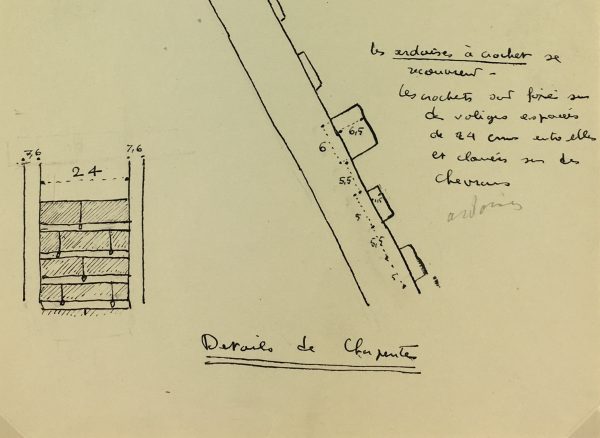 les ardoises à crochet se
recouvrent -
Les crochets sont fixés sur
des voliges espacées
de 24 cms entre elles
et clouées sur des
chevrons
ardoises
7,6 7,6
24
6,5
6
5,5
5
5,5
Details de Charpente